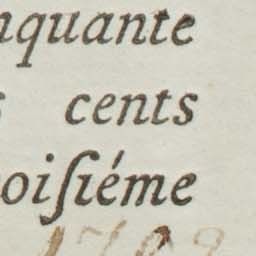 nquante
s cents
oiſiéme